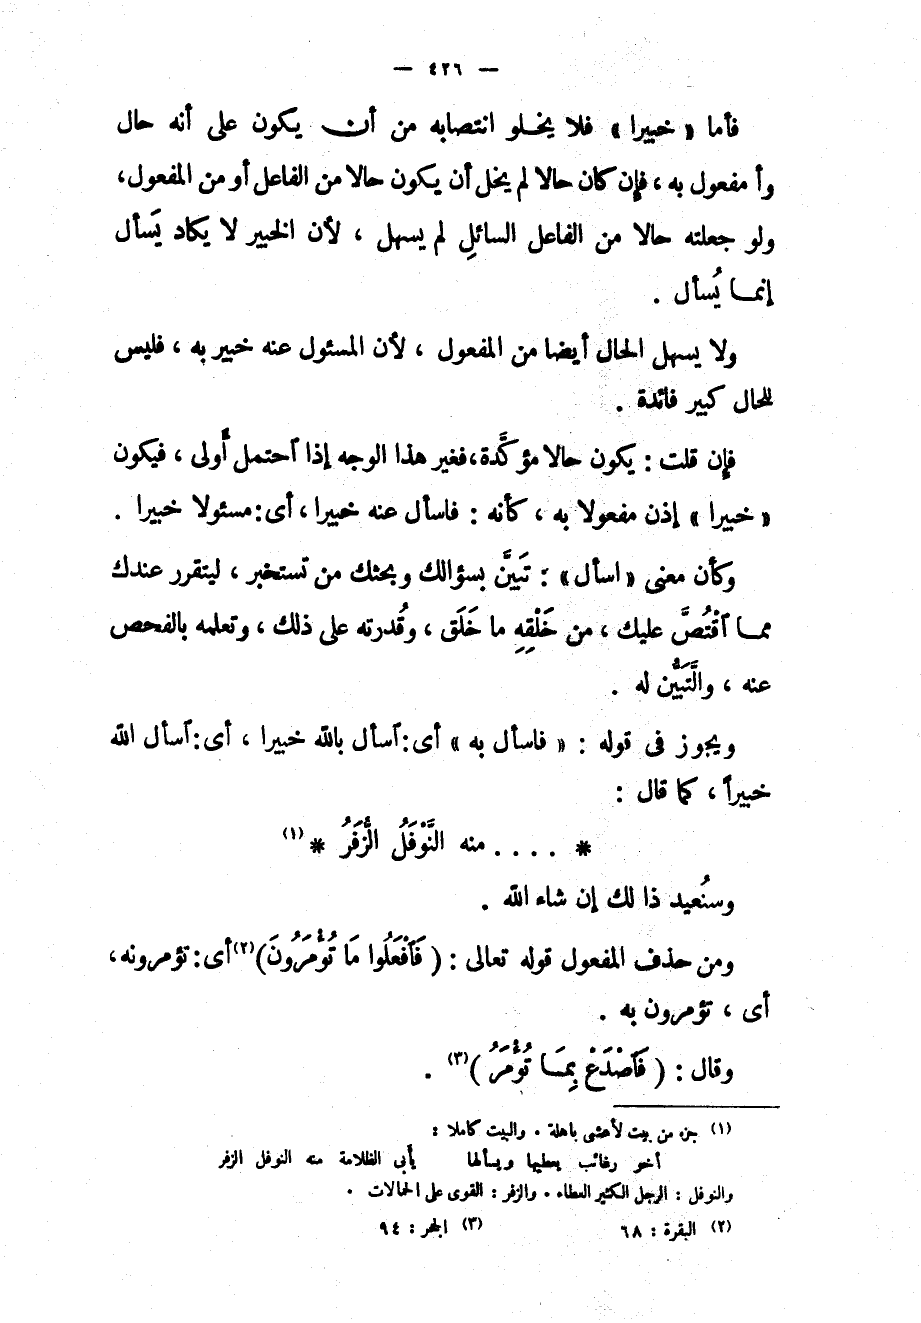 — ٤٢٦ —
فأما « خبيرا » فلا يخلو انتصابه من أن يكون على أنه حال
وأ مفعول به ، فإن كان حالا لم يخل أن يكون حالا من الفاعل أو من المفعول،
ولو جعلته حالا من الفاعل السائلِ لم يسهل ، لأن الخبير لا يكاد يَسأل
إنمـا يُسأل .
ولا يسهل الحال أيضا من المفعول ، لأن المسئول عنه خبير به ، فليس
للحال كبير فائدة .
فإن قلت : يكون حالا مؤكَّدة، فغير هذا الوجه إذا ٱحتمل أَولى ، فيكون
« خبيرا » إذن مفعولا به ، كأنه : فاسأل عنه خبيرا ، أى: مسئولا خبيرا .
وكأن معنى « اسأل » : تَبيَّن بسؤالك وبحثك من تستخبر ، ليتقرر عندك
ممـا ٱقْتُصَّ عليك ، من خَلْقِهِ ما خَلَق ، وقُدرته على ذلك ، وتعلمه بالفحص
عنه ، والَّتبَيُّن له .
ويجوز فى قوله : « فاسأل به » أى: ٱسأل بالله خبيرا ، أى: ٱسأل الله
خبيراً ، كما قال :
* . . . . منه النَّوْفَلُ الزُّفَرُ * (١)
وسنُعيد ذا لك إن شاء الله .
ومن حذف المفعول قوله تعالى : ( فَٱفْعَلُوا مَا تُؤْمَرُونَ)(٢) أى: تؤمرونه،
أى ، تؤمرون به .
وقال : ( فَٱصْدَعْ بِمَـا تُؤْمَرُ )(٣) .
(١) جزء من بيت لأعشى باهلة . والبيت كاملا :
أخو رغائب يعطيها ويسألها يأبى الظلامة منه النوفل الزفر
والنوفل : الرجل الكثير العطاء . والزفر : القوى على الحمالات .
(٢) البقرة : ٦٨ (٣) الحجر : ٩٤